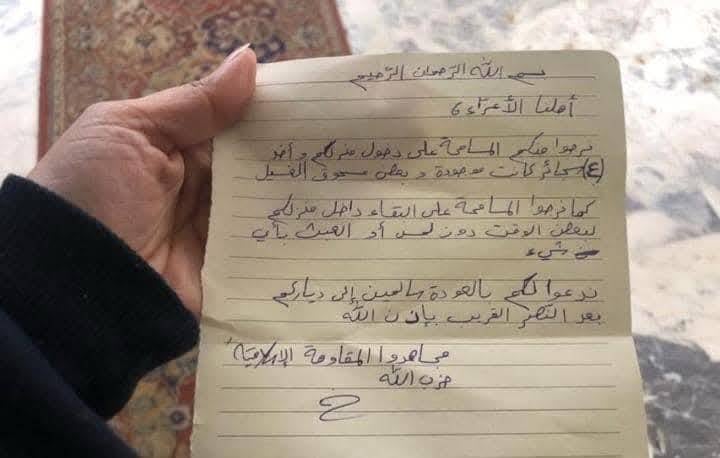 بسم الله الرحمان الرحيم
أهلنا الأعزاء،
نرجوا منكم المسامحة على دخول منزلكم وأخذ
(٤) سجائر كانت موجودة وبعض مسحوق الغسيل
كما نرجوا المسامحة على البقاء داخل منزلكم
لبعض الوقت دون لمس أو العبث بأي
شيء
ندعوا لكم بالعودة سالمين إلى دياركم
بعد النصر القريب بإذن الله
مجاهدوا المقاومة الإسلامية
حزب الله